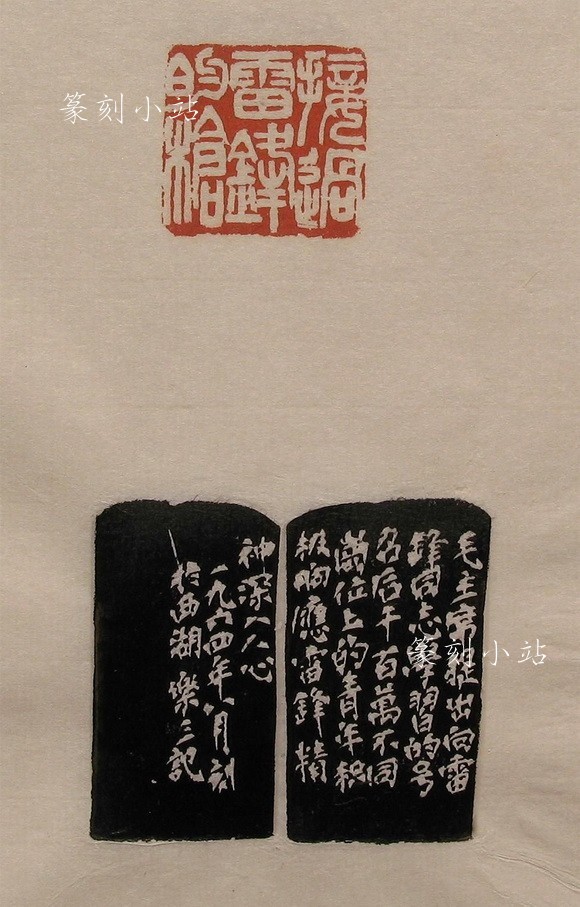 篆刻小站
接過
雷鋒
的槍
毛主席提出向雷
鋒同志学習的号
召后千百萬不同
崗位上的青年积
极响應雷鋒精
神深入人心
一九六四年八月刻
於西湖樂三記
篆刻小站